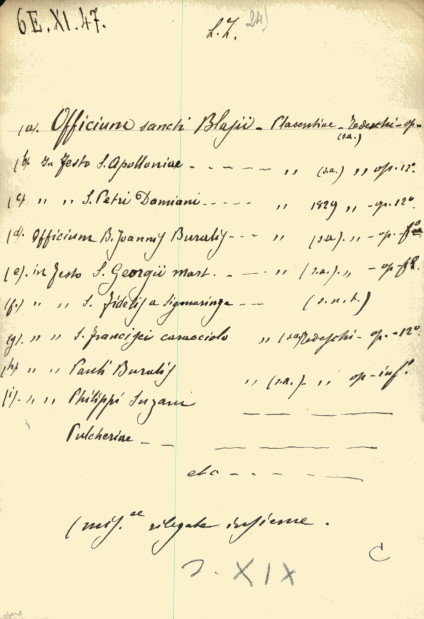 6E.XI.47. L.Z. 24)
(a). Officium sancti Blasii - Placentiae - Tedeschi - op -
(s.a.)
(b) In Festo S. Apolloniae - - - - - " (s.a.) " op. 12°
(c) " " S. Petri Damiani - - - - " 1829 " - op. 12°
(d). Officium B. Joannis Buralis - - - " (s.a.) " - op -
(e). in Festo S. Georgii mart. - - - " (s.a.) " - op -
(f.) " " S. Fidelis a Sigmaringa - - (s.n.t.)
(g). " " S. Francisci Caracciolo " (s.a. Tedeschi - op. - 12°
(h) " " Pauli Buralis " (s.a.) - " op - in f.°
(i). " " Philippi Suzani — — —
Pulcheriae - - — — —
etc - - - - —
(mis.ee rilegate insieme.
C
S. XIX